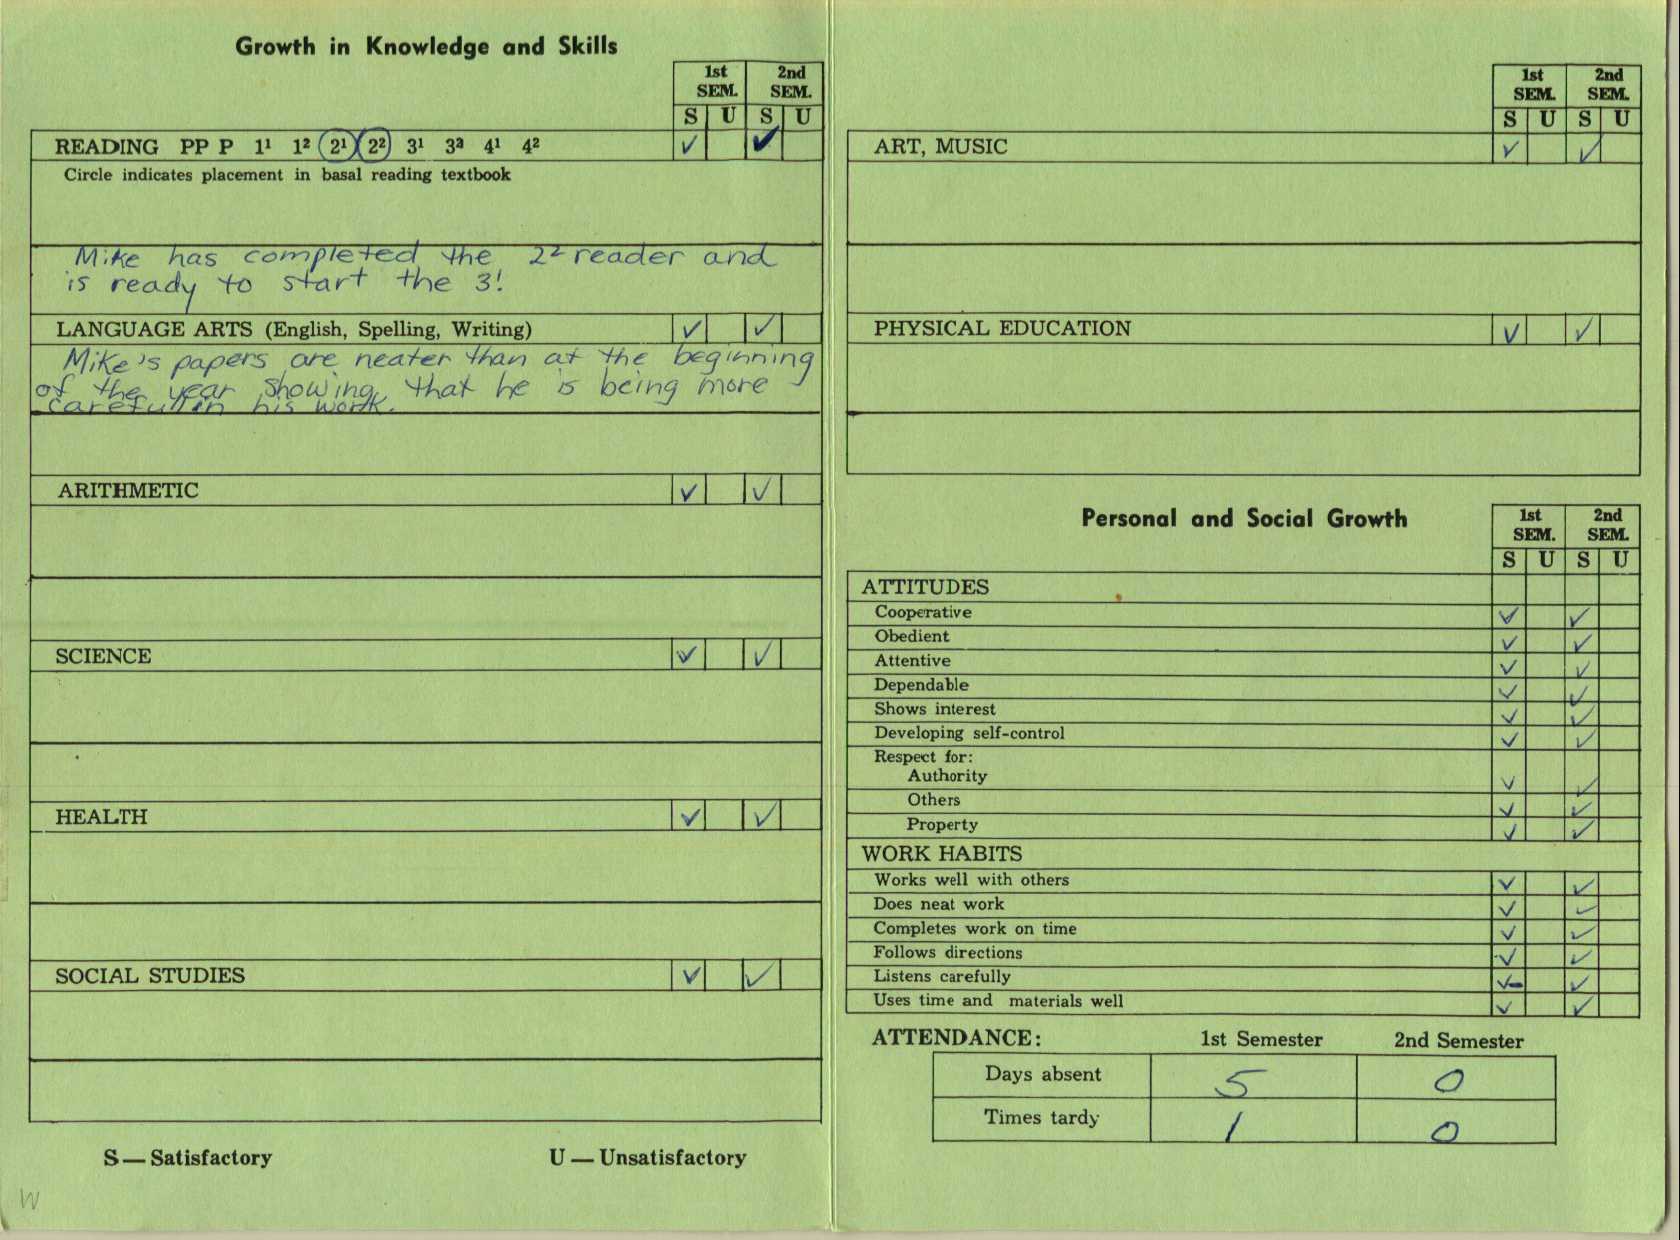 Growth in Knowledge and Skills
1st SEM. 2nd SEM.
S U S U
READING PP P 1¹ 1² 2¹ 2² 3¹ 3² 4¹ 4²
Circle indicates placement in basal reading textbook
Mike has completed the 2² reader and
is ready to start the 3¹.
LANGUAGE ARTS (English, Spelling, Writing)
Mike's papers are neater than at the beginning
of the year showing that he is being more
careful in his work.
ARITHMETIC
SCIENCE
HEALTH
SOCIAL STUDIES
S — Satisfactory U — Unsatisfactory
W
1st SEM. 2nd SEM.
S U S U
ART, MUSIC
PHYSICAL EDUCATION
Personal and Social Growth
1st SEM. 2nd SEM.
S U S U
ATTITUDES
Cooperative
Obedient
Attentive
Dependable
Shows interest
Developing self-control
Respect for:
Authority
Others
Property
WORK HABITS
Works well with others
Does neat work
Completes work on time
Follows directions
Listens carefully
Uses time and materials well
ATTENDANCE: 1st Semester 2nd Semester
Days absent 5 0
Times tardy 1 0